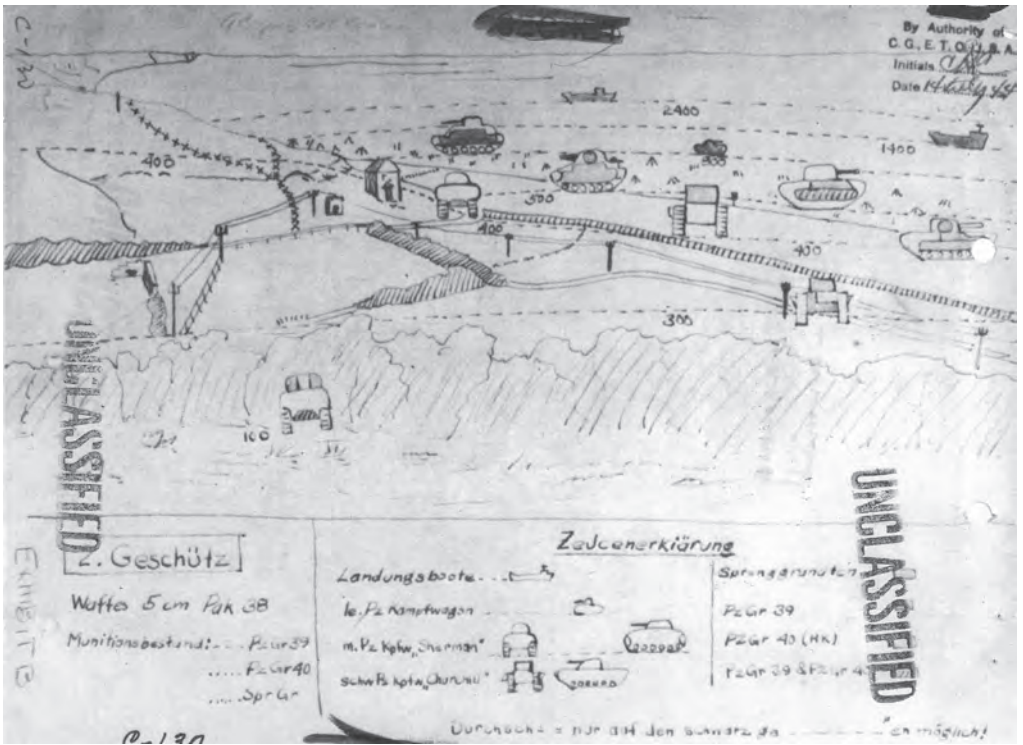 C-130
By Authority of
C. G., E. T. O., U. S. A.
Initials
Date
2400
1400
800
400
500
400
400
300
100
UNCLASSIFIED
UNCLASSIFIED
EXHIBIT B
2. Geschütz
Waffe: 5 cm Pak 38
Munitionsbestand: .... PzGr 39
..... PzGr 40
..... SprGr
Zeicenerklärung
Landungsboote
le. Pz Kampfwagen
m. Pz Kpfw. „Sherman"
schw Pz Kpfw. „Churchill"
Sprenggranaten
PzGr 39
PzGr 40 (HK)
PzGr 39 & PzGr
nur auf den schwarz
möglich!
C-130